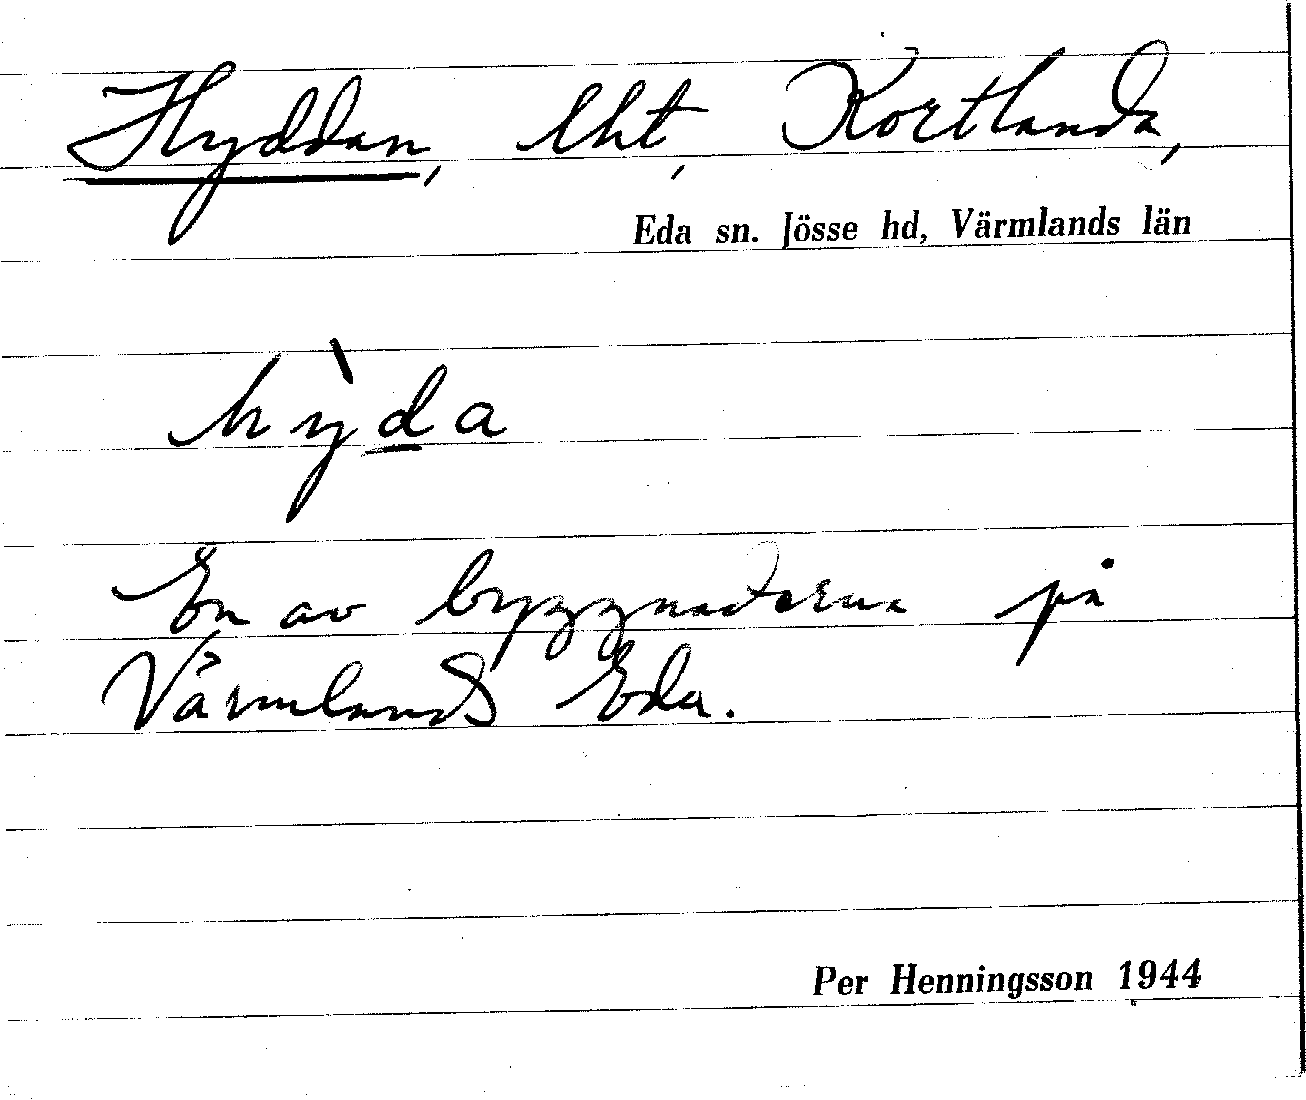 Hyddan, lht, Kortlanda,
Eda sn. Jösse hd, Värmlands län
hỳd̲a
En av byggnaderna på
Värmlands Eda.
Per Henningsson 1944